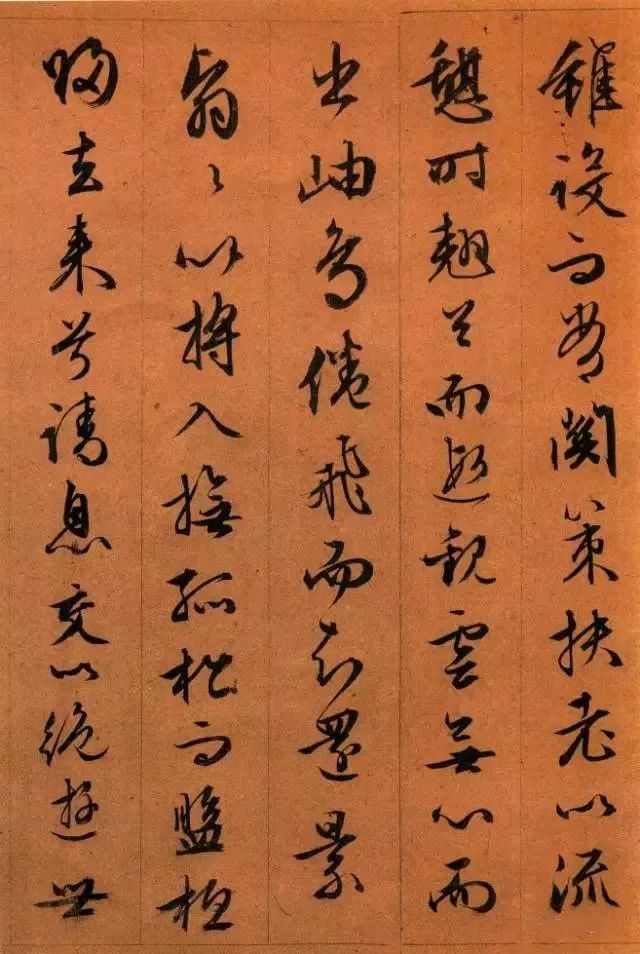 雖設而常關策扶老以流
憩時翹首而遐觀雲無心而
出岫鳥倦飛而知還景
翳〻以將入撫孤松而盤桓
歸去来兮請息交以絶遊世